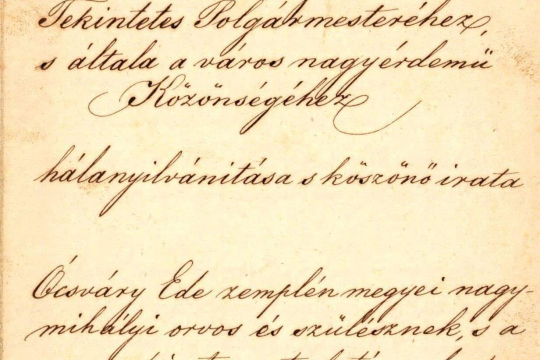 Tekintetes Polgármesteréhez,
s általa a város nagyérdemű
Közönségéhez
hálanyilvánitása s köszönő irata
Ócsváry Ede zemplén megyei nagy-
mihályi orvos és szülésznek, s a